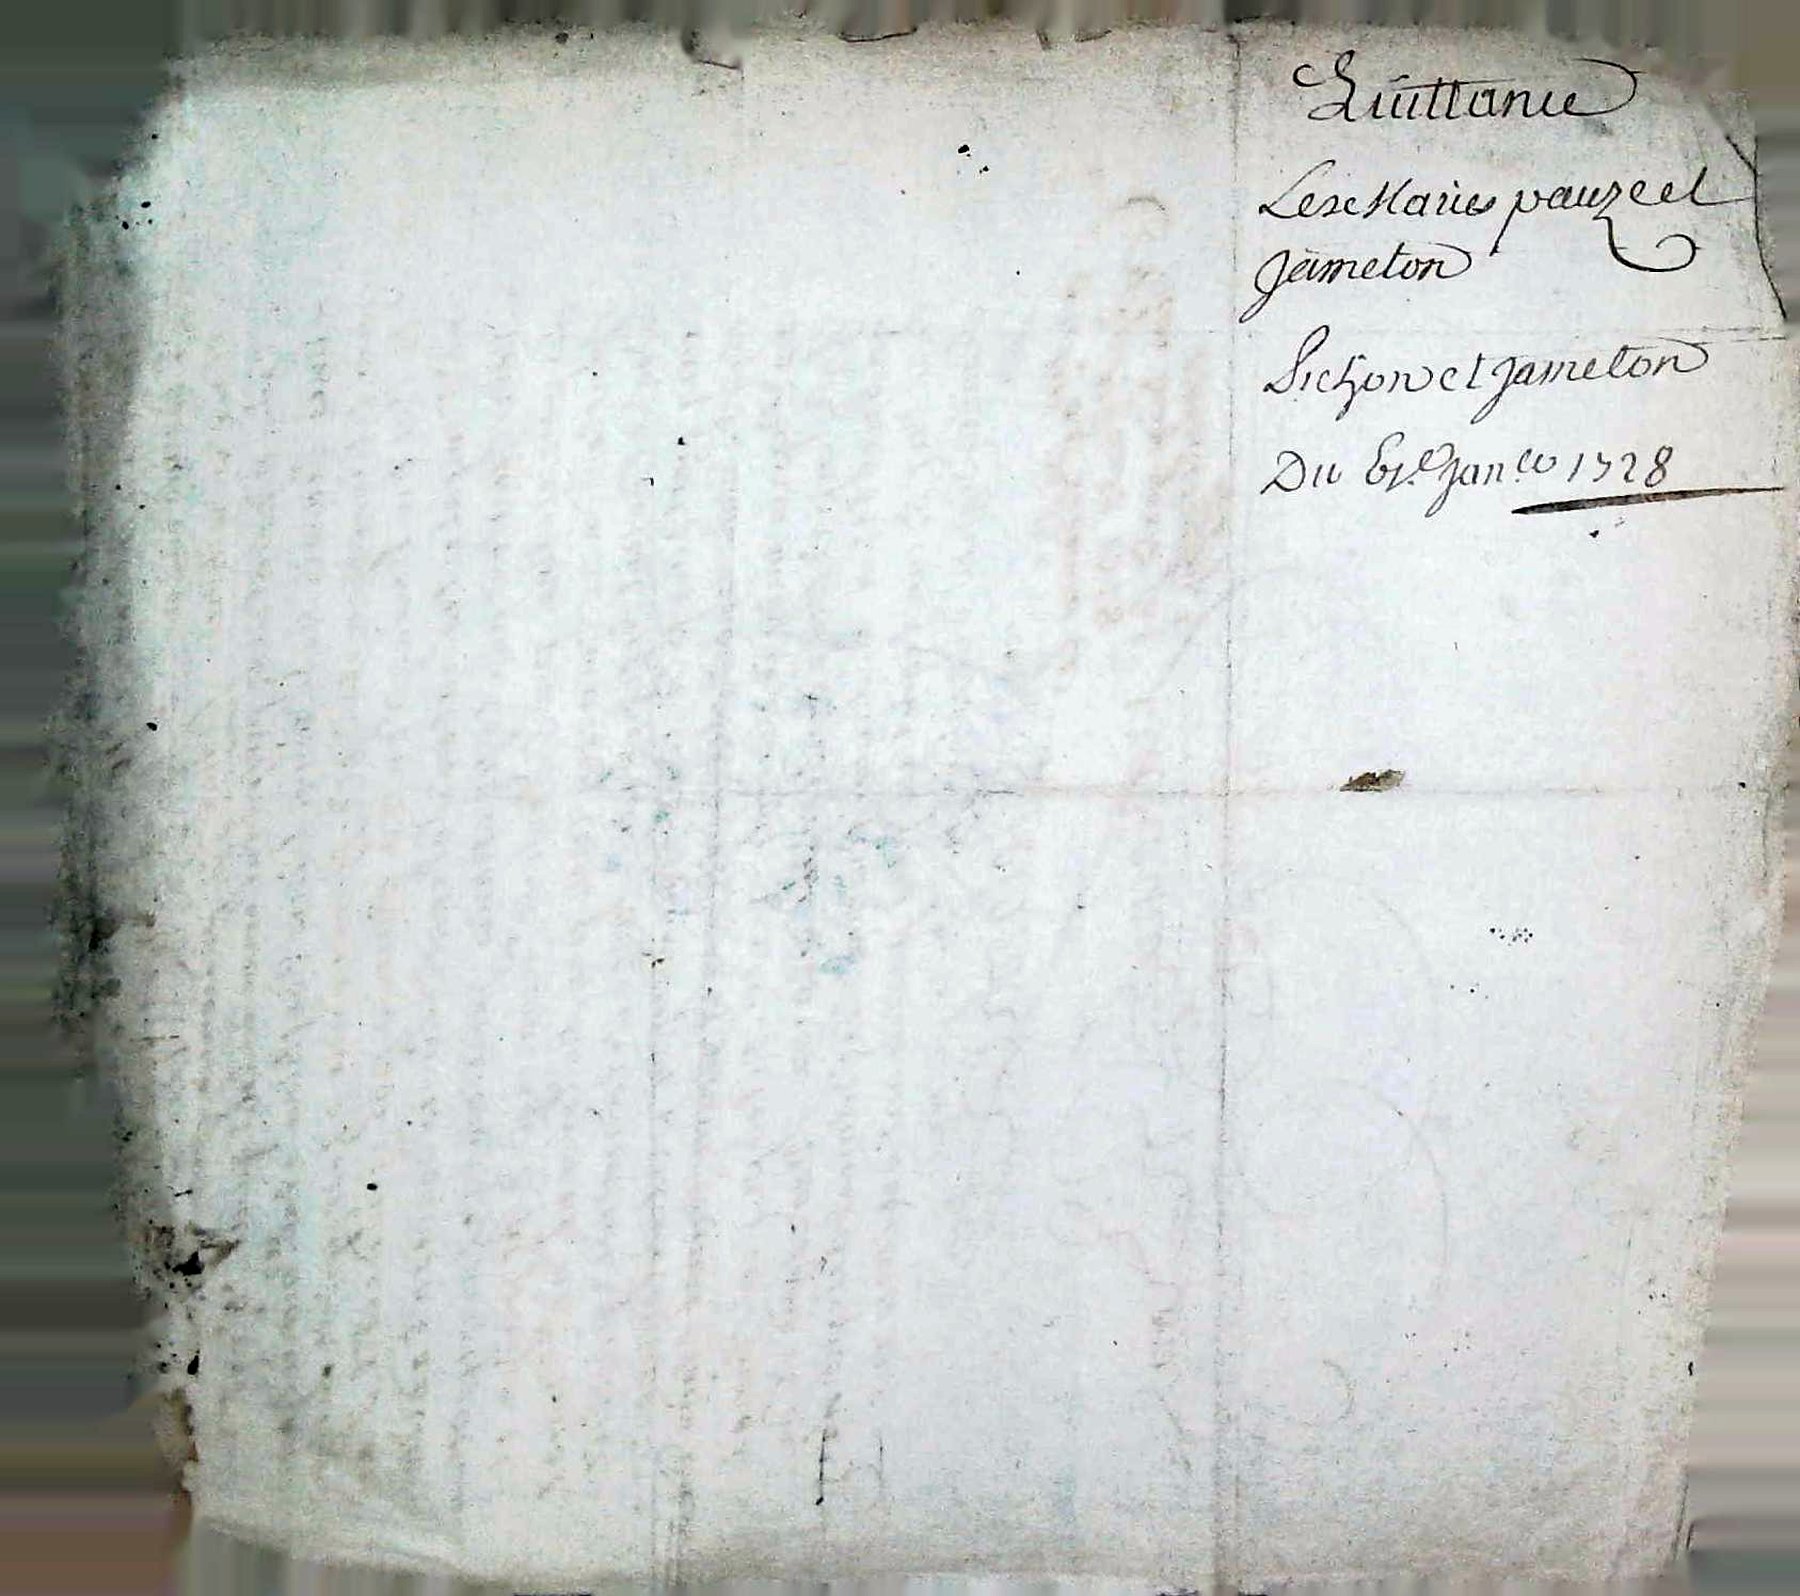 Quittance
Les Maries pauze et
Jameton
Sichon et Jameton
Du Janer 1728